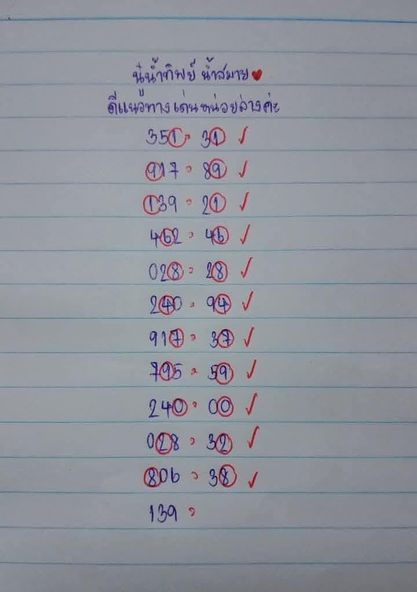 น้ำทิพย์ น้ำสมาย ❤
ดูแนวทางเด่นหน่อยล่างค่ะ
351 = 31 ✓
917 = 89 ✓
139 = 21 ✓
462 = 46 ✓
028 = 28 ✓
240 = 94 ✓
917 = 37 ✓
795 = 59 ✓
240 = 00 ✓
028 = 32 ✓
806 = 38 ✓
139 =